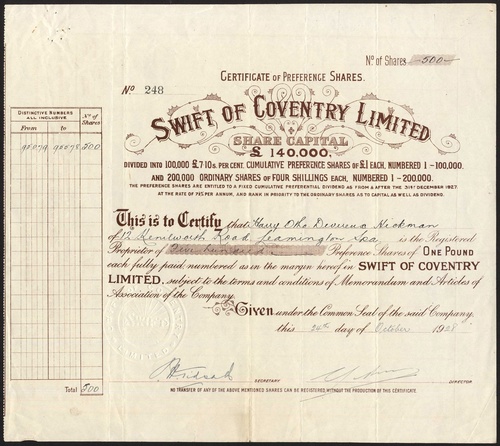 No of Shares -500-
No 248
CERTIFICATE OF PREFERENCE SHARES.
SWIFT OF COVENTRY LIMITED
SHARE CAPITAL
£ 140,000,
DIVIDED INTO 100,000 £7 10s. PER CENT. CUMULATIVE PREFERENCE SHARES OF £1 EACH, NUMBERED 1-100,000.
AND 200,000 ORDINARY SHARES OF FOUR SHILLINGS EACH, NUMBERED 1-200,000.
THE PREFERENCE SHARES ARE ENTITLED TO A FIXED CUMULATIVE PREFERENTIAL DIVIDEND AS FROM & AFTER THE 31ST DECEMBER 1927.
AT THE RATE OF 7½% PER ANNUM, AND RANK IN PRIORITY TO THE ORDINARY SHARES AS TO CAPITAL AS WELL AS DIVIDEND.
DISTINCTIVE NUMBERS ALL INCLUSIVE
No of Shares
From to
500
This is to Certify that Harry Devereux Hickman
of Kenilworth Road, Leamington Spa is the Registered
Proprietor of Five hundred Preference Shares of ONE POUND
each fully paid numbered as in the margin hereof in SWIFT OF COVENTRY
LIMITED, subject to the terms and conditions of Memorandum and Articles of
Association of the Company.
Given under the Common Seal of the said Company,
this 24th day of October 1928
SECRETARY
DIRECTOR
Total 500
NO TRANSFER OF ANY OF THE ABOVE MENTIONED SHARES CAN BE REGISTERED WITHOUT THE PRODUCTION OF THIS CERTIFICATE.